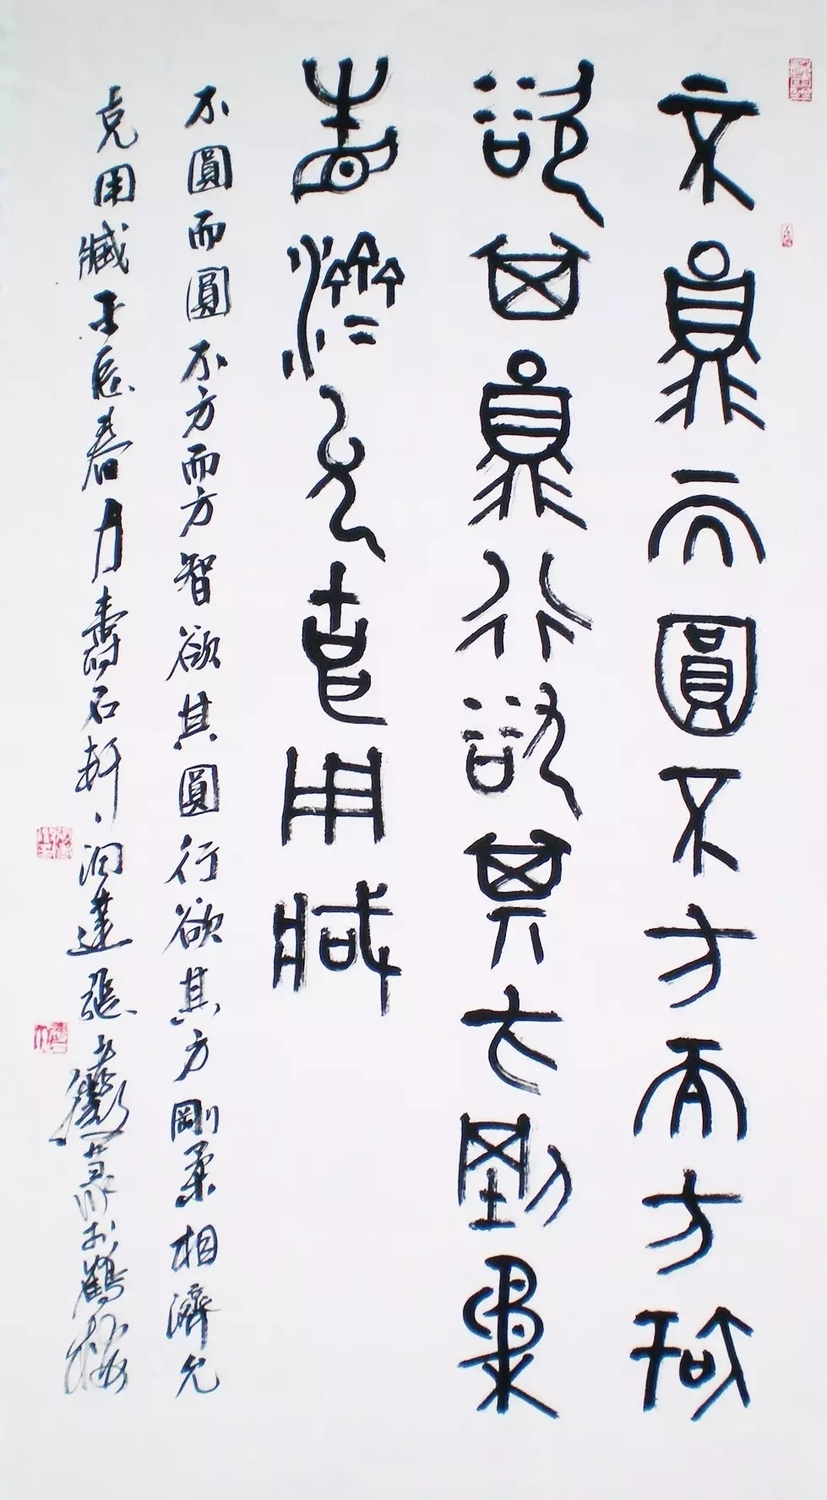 不圓而圓不方而方智
欲其圓行欲其方剛柔
相濟允克用臧
不圓而圓不方而方智欲其圓行欲其方剛柔相濟允
克用臧春月壽石軒張篆於鶴梅